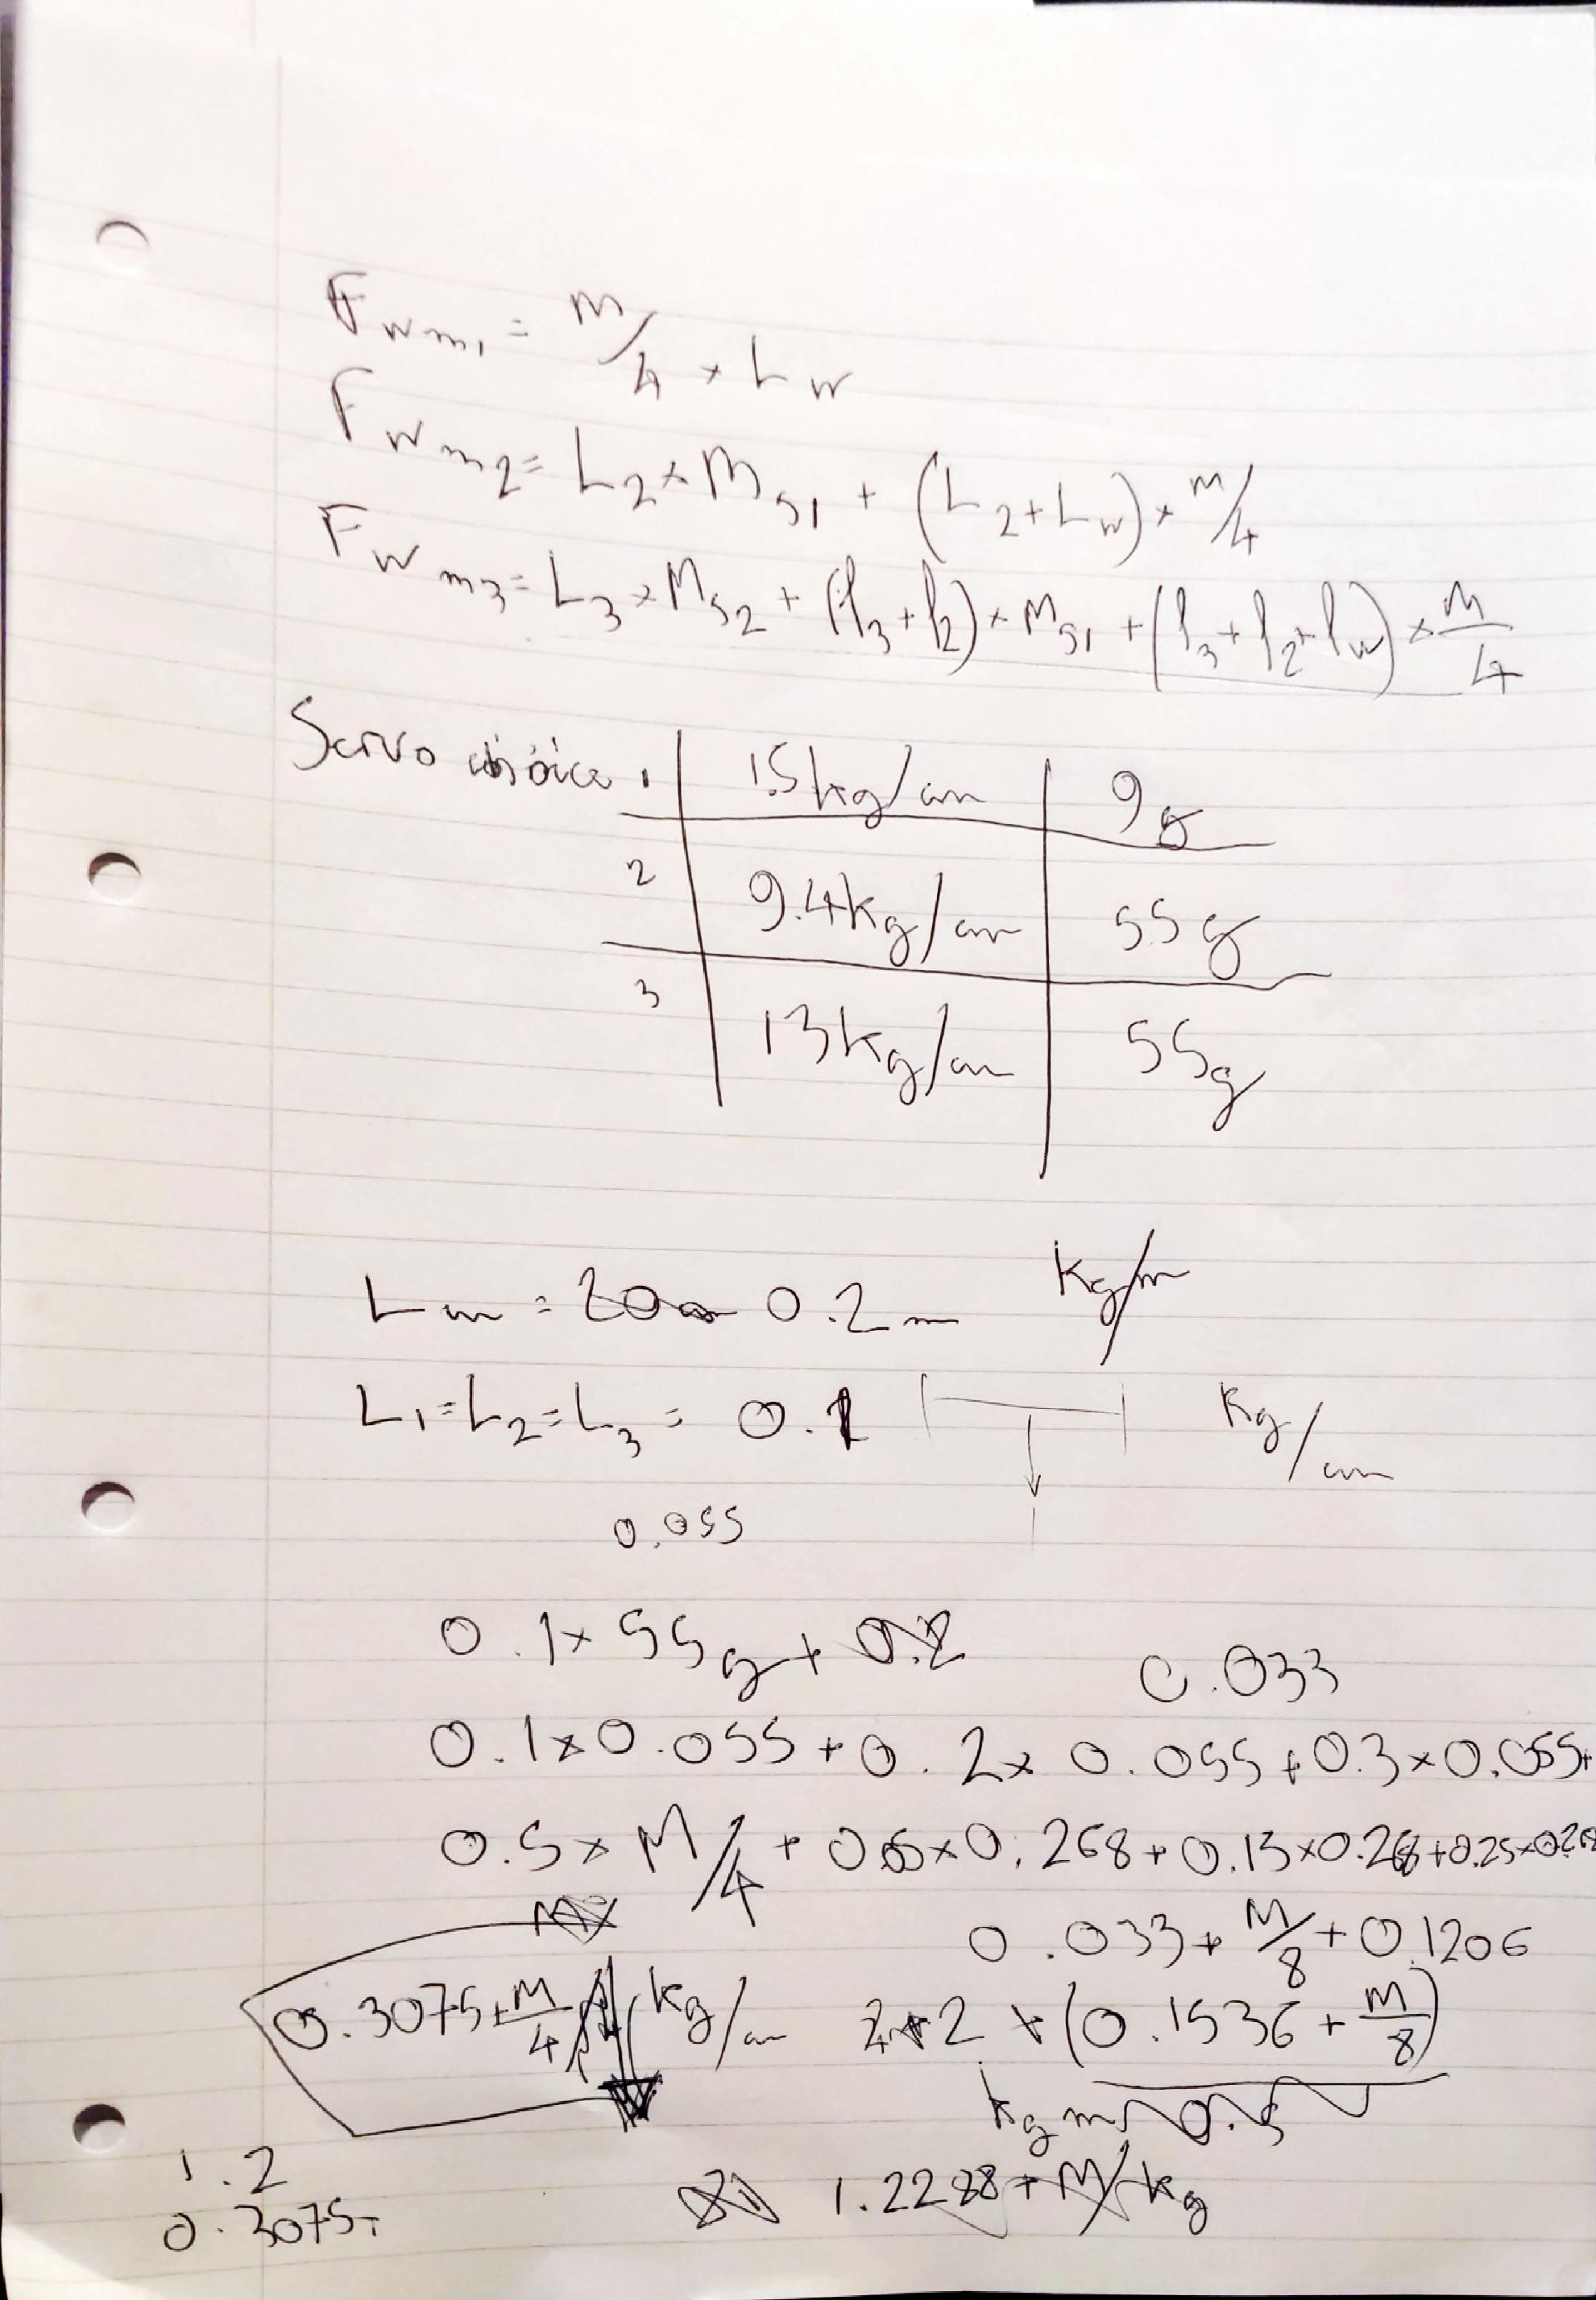 F w m1 = m/4 × L w
F w m2 = L2 × M s1 + (L2 + L w) × m/4
F w m3 = L3 × M s2 + (l3 + l2) × M s1 + (l3 + l2 + l w) × m/4
Servo 1 | 1.5kg/cm | 9g
2 | 9.4kg/cm | 55g
3 | 13kg/cm | 55g
L = 0.2m kg/m
L1 = L2 = L3 = 0.1 kg/cm
0.055
0.1 × 55g + 0.2
0.033
0.1 × 0.055 + 0.2 × 0.055 + 0.3 × 0.055 +
0.5 × M/4 + 0.05 × 0.268 + 0.15 × 0.268 + 0.25 × 0.268
0.033 + M/8 + 0.1206
0.3075 + M/4 kg/cm 2 × (0.1536 + m/8)
kg m 0.5
1.2
1.2288 + M/ kg
0.3075 +